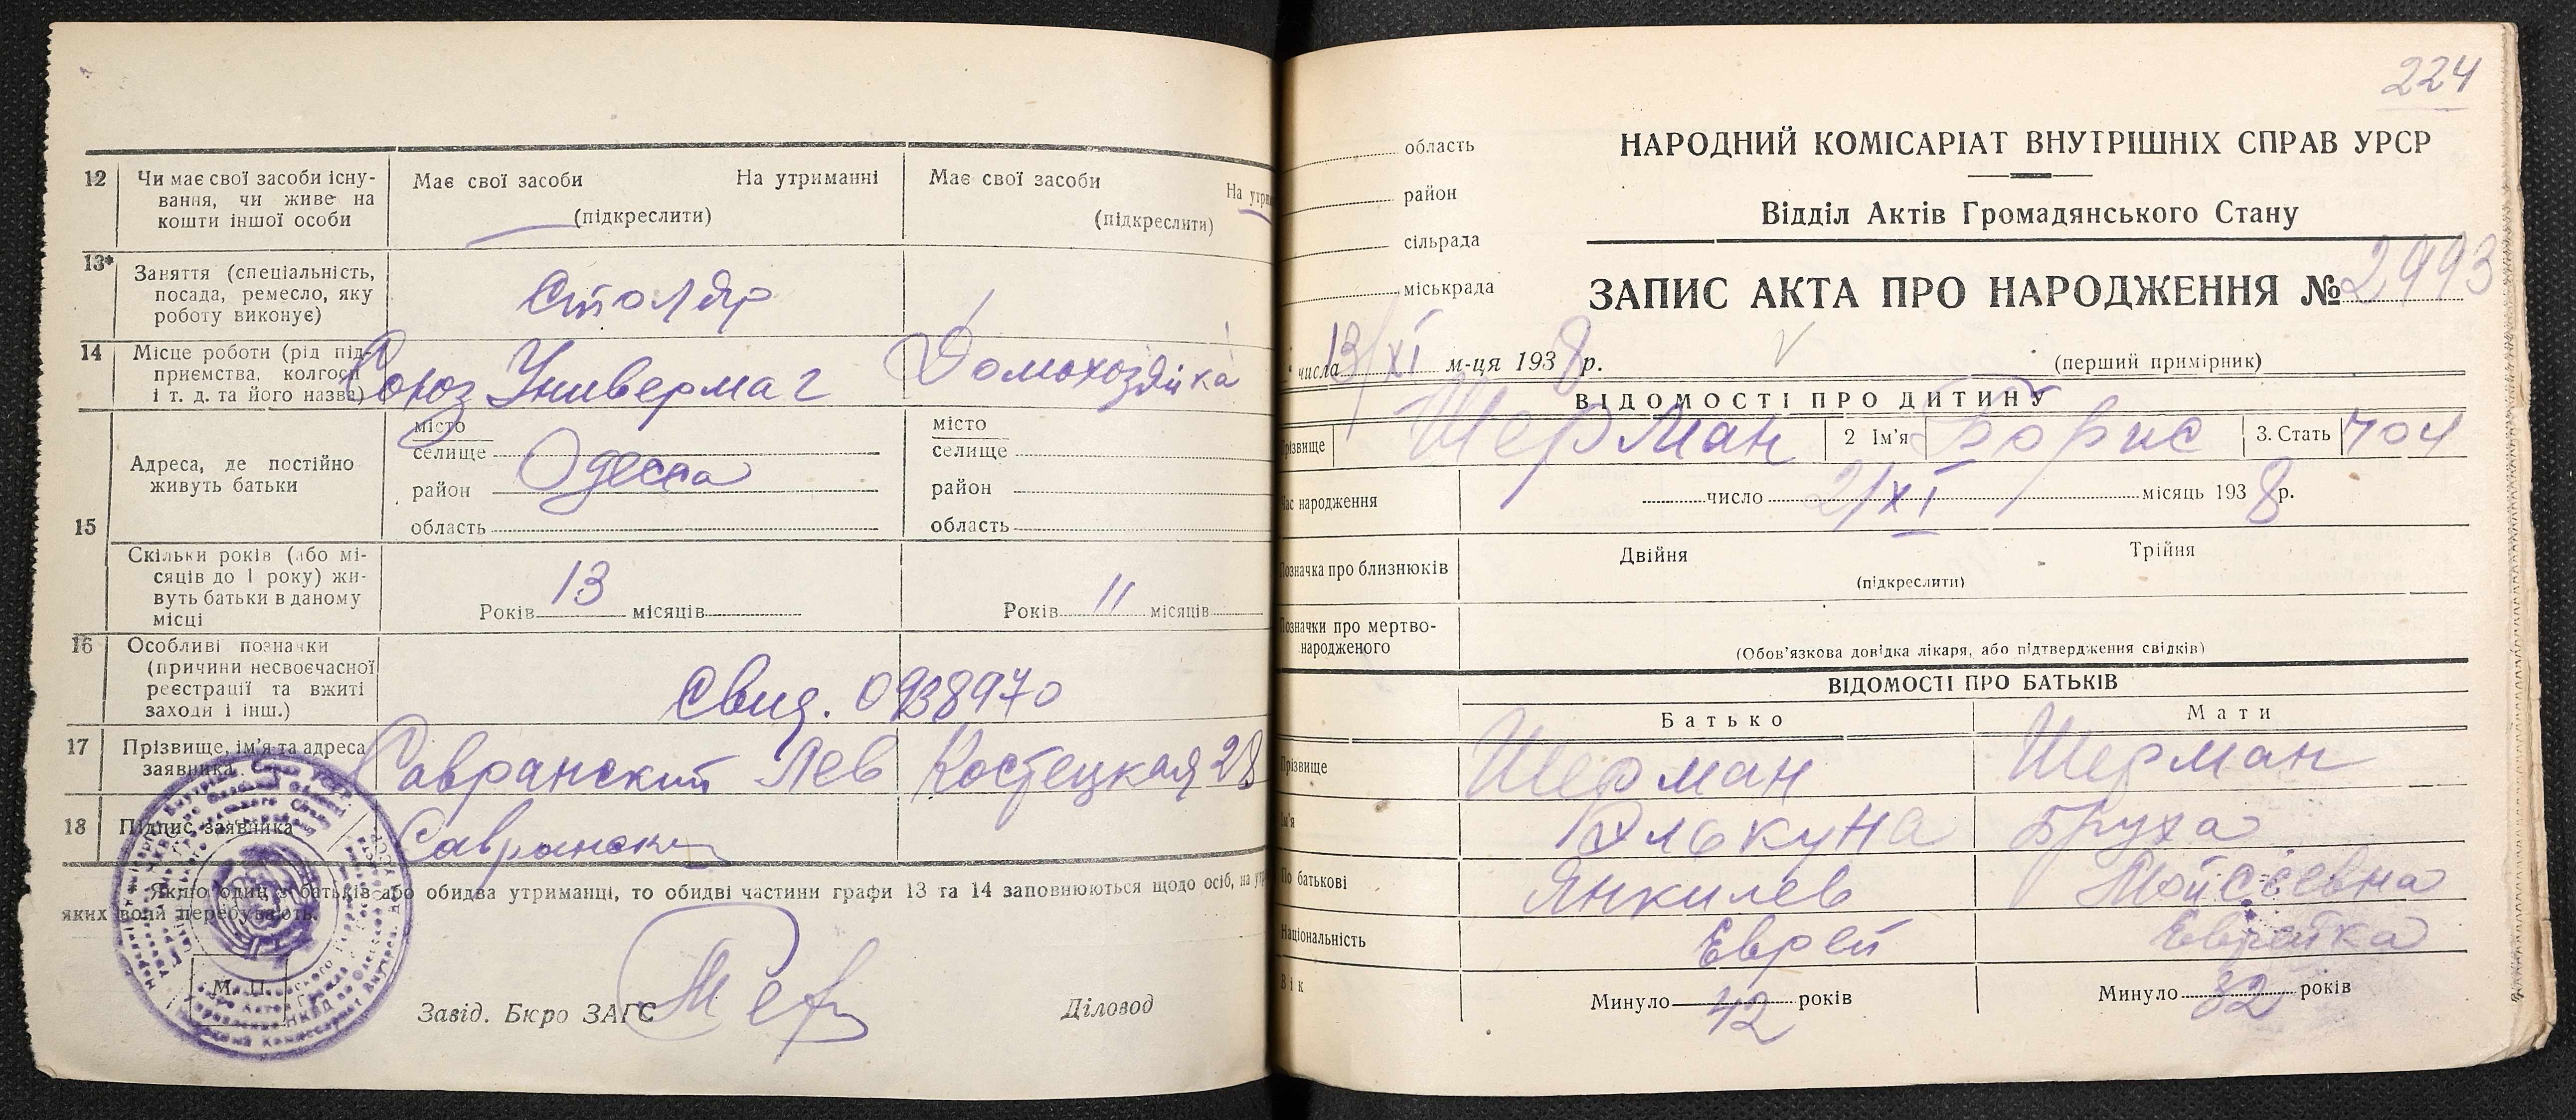 12 Чи має свої засоби існу-
вання, чи живе на
кошти іншої особи
Має свої засоби На утриманні
(підкреслити)
Має свої засоби На
(підкреслити)
13* Заняття (спеціальність,
посада, ремесло, яку
роботу виконує)
Столяр
14 Місце роботи (рід під-
приємства, колгосп
і т. д. та його назва)
Союз Универмаг
Домохозяйка
15
Адреса, де постійно
живуть батьки
місто
селище
Одесса
район
область
місто
селище
район
область
Скільки років (або мі-
сяців до 1 року) жи-
вуть батьки в даному
місці
Років 13 місяців
Років 11 місяців
16 Особливі позначки
(причини несвоєчасної
реєстрації та вжиті
заходи і інш.)
Свид. 0938970
17 Прізвище, ім'я та адреса
заявника
Савранский Лев Костецкая 28
18 Підпис заявника
Савранский
Якщо один з батьків або обидва утриманні, то обидві частини графи 13 та 14 заповнюються щодо осіб, на
яких вони перебувають.
М. П.
Завід. Бюро ЗАГС
Діловод
224
область
район
сільрада
міськрада
НАРОДНИЙ КОМІСАРІАТ ВНУТРІШНІХ СПРАВ УРСР
Відділ Актів Громадянського Стану
ЗАПИС АКТА ПРО НАРОДЖЕННЯ № 2993
числа 13/XI м-ця 1938 р.
(перший примірник)
ВІДОМОСТІ ПРО ДИТИНУ
Прізвище Шерман 2 Ім'я Борис 3. Стать чол
Час народження
число 2/XI місяць 1938 р.
Позначка про близнюків
Двійня Трійня
(підкреслити)
Позначки про мертво-
народженого
(Обов'язкова довідка лікаря, або підтвердження свідків)
ВІДОМОСТІ ПРО БАТЬКІВ
Батько Мати
Прізвище Шерман Шерман
Ім'я Элькуна Бруха
По батькові Янкилев Мойсеевна
Національність Еврей Еврейка
Вік Минуло 42 років Минуло 32 років